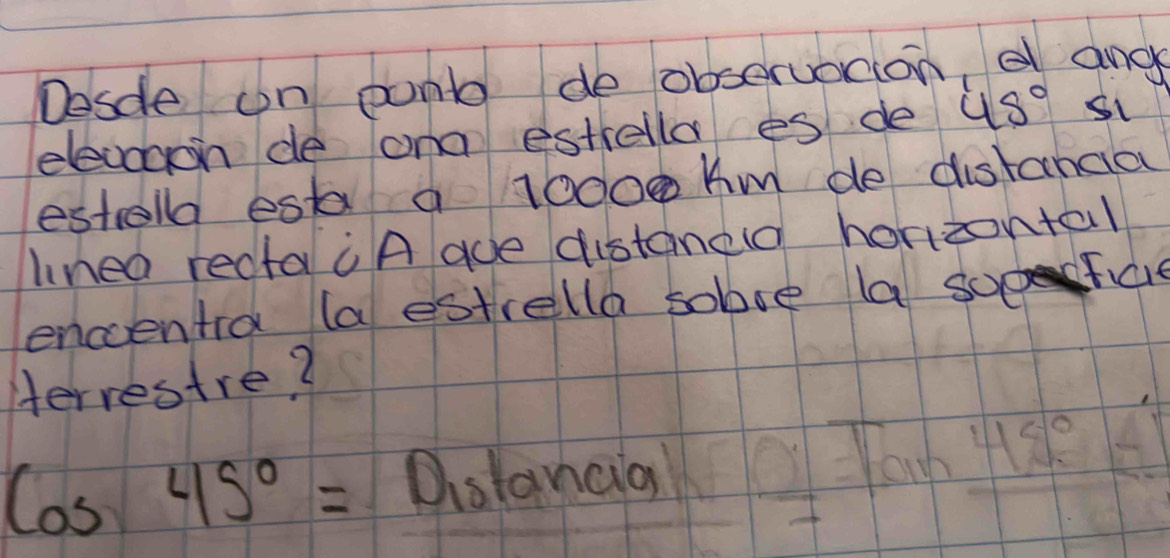 Desde un punto de observación, el ang
elevación de una estrella es de 45° si
estrella esta a 10000 Km de distancia
linea recta ¿A que distancia horizontal
encuentra la estrella sobre la superficie
terrestre?
Cos 45° = Distancia
Tan 45°